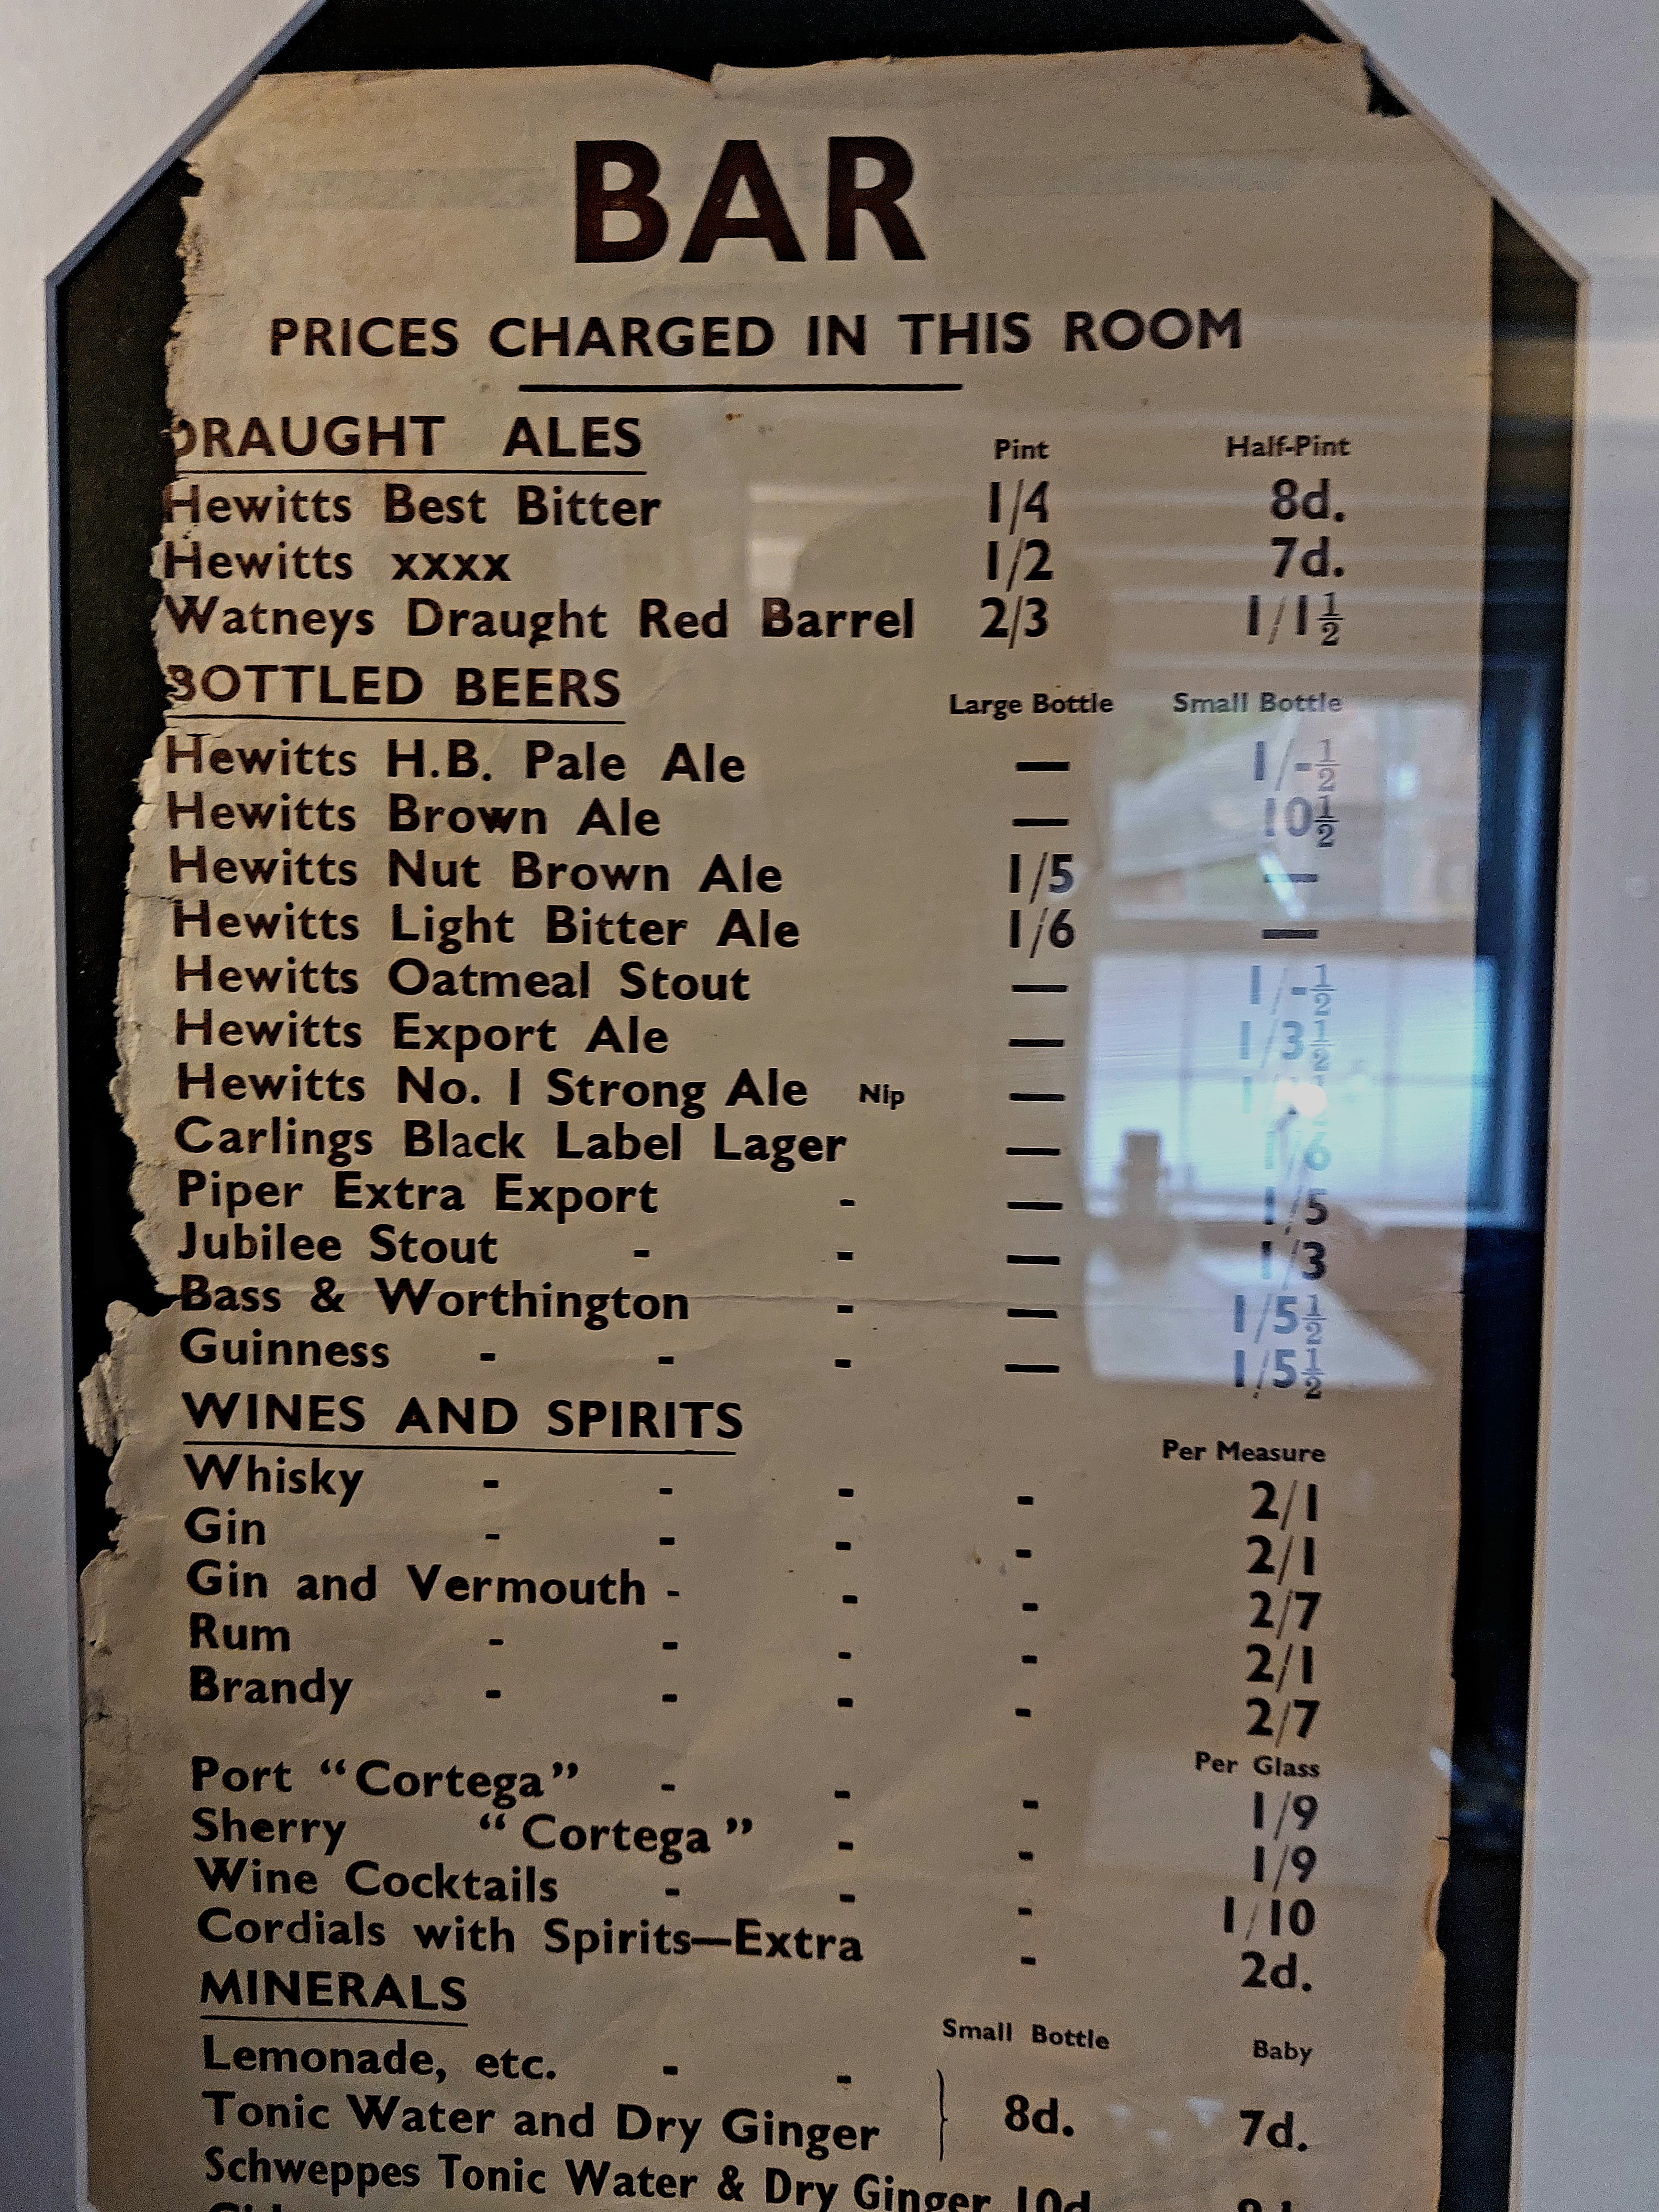 BAR
PRICES CHARGED IN THIS ROOM
DRAUGHT ALES Pint Half-Pint
Hewitts Best Bitter 1/4 8d.
Hewitts xxxx 1/2 7d.
Watneys Draught Red Barrel 2/3 1/1½
BOTTLED BEERS Large Bottle Small Bottle
Hewitts H.B. Pale Ale — 1/-½
Hewitts Brown Ale — 10½
Hewitts Nut Brown Ale 1/5 —
Hewitts Light Bitter Ale 1/6 —
Hewitts Oatmeal Stout — 1/-½
Hewitts Export Ale — 1/3½
Hewitts No. 1 Strong Ale Nip —
Carlings Black Label Lager — 1/6
Piper Extra Export - — 1/5
Jubilee Stout - - — 1/3
Bass & Worthington - — 1/5½
Guinness - - - — 1/5½
WINES AND SPIRITS Per Measure
Whisky - - - - 2/1
Gin - - - - 2/1
Gin and Vermouth - - - 2/7
Rum - - - - 2/1
Brandy - - - - 2/7
Per Glass
Port “Cortega” - - - 1/9
Sherry “Cortega” - - 1/9
Wine Cocktails - - - 1/10
Cordials with Spirits—Extra - 2d.
MINERALS Small Bottle Baby
Lemonade, etc. - -
Tonic Water and Dry Ginger 8d. 7d.
Schweppes Tonic Water & Dry Ginger 10d